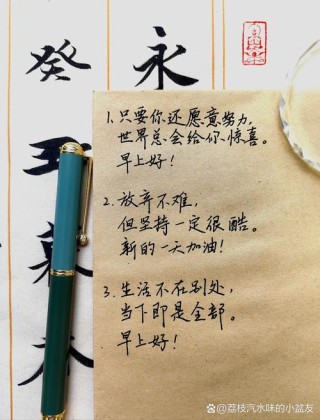 永
癸
1.只要你还愿意努力,
世界总会给你惊喜。
早上好!
2.放弃不难,
但坚持一定很酷。
新的一天加油!
3.生活不在别处,
当下即是全部。
早上好!
@荔枝汽水味的小盆友